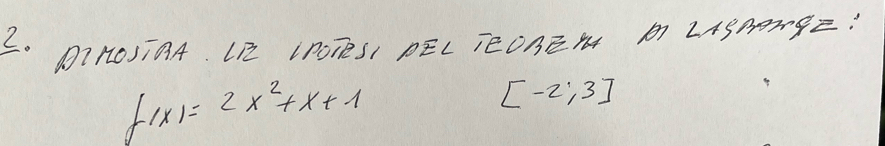 2. DIMOSTRA LE IPOTESI DEL TEOREMA DI LAGRANGE:
f(x)= 2x²+x+1 [-2;3]